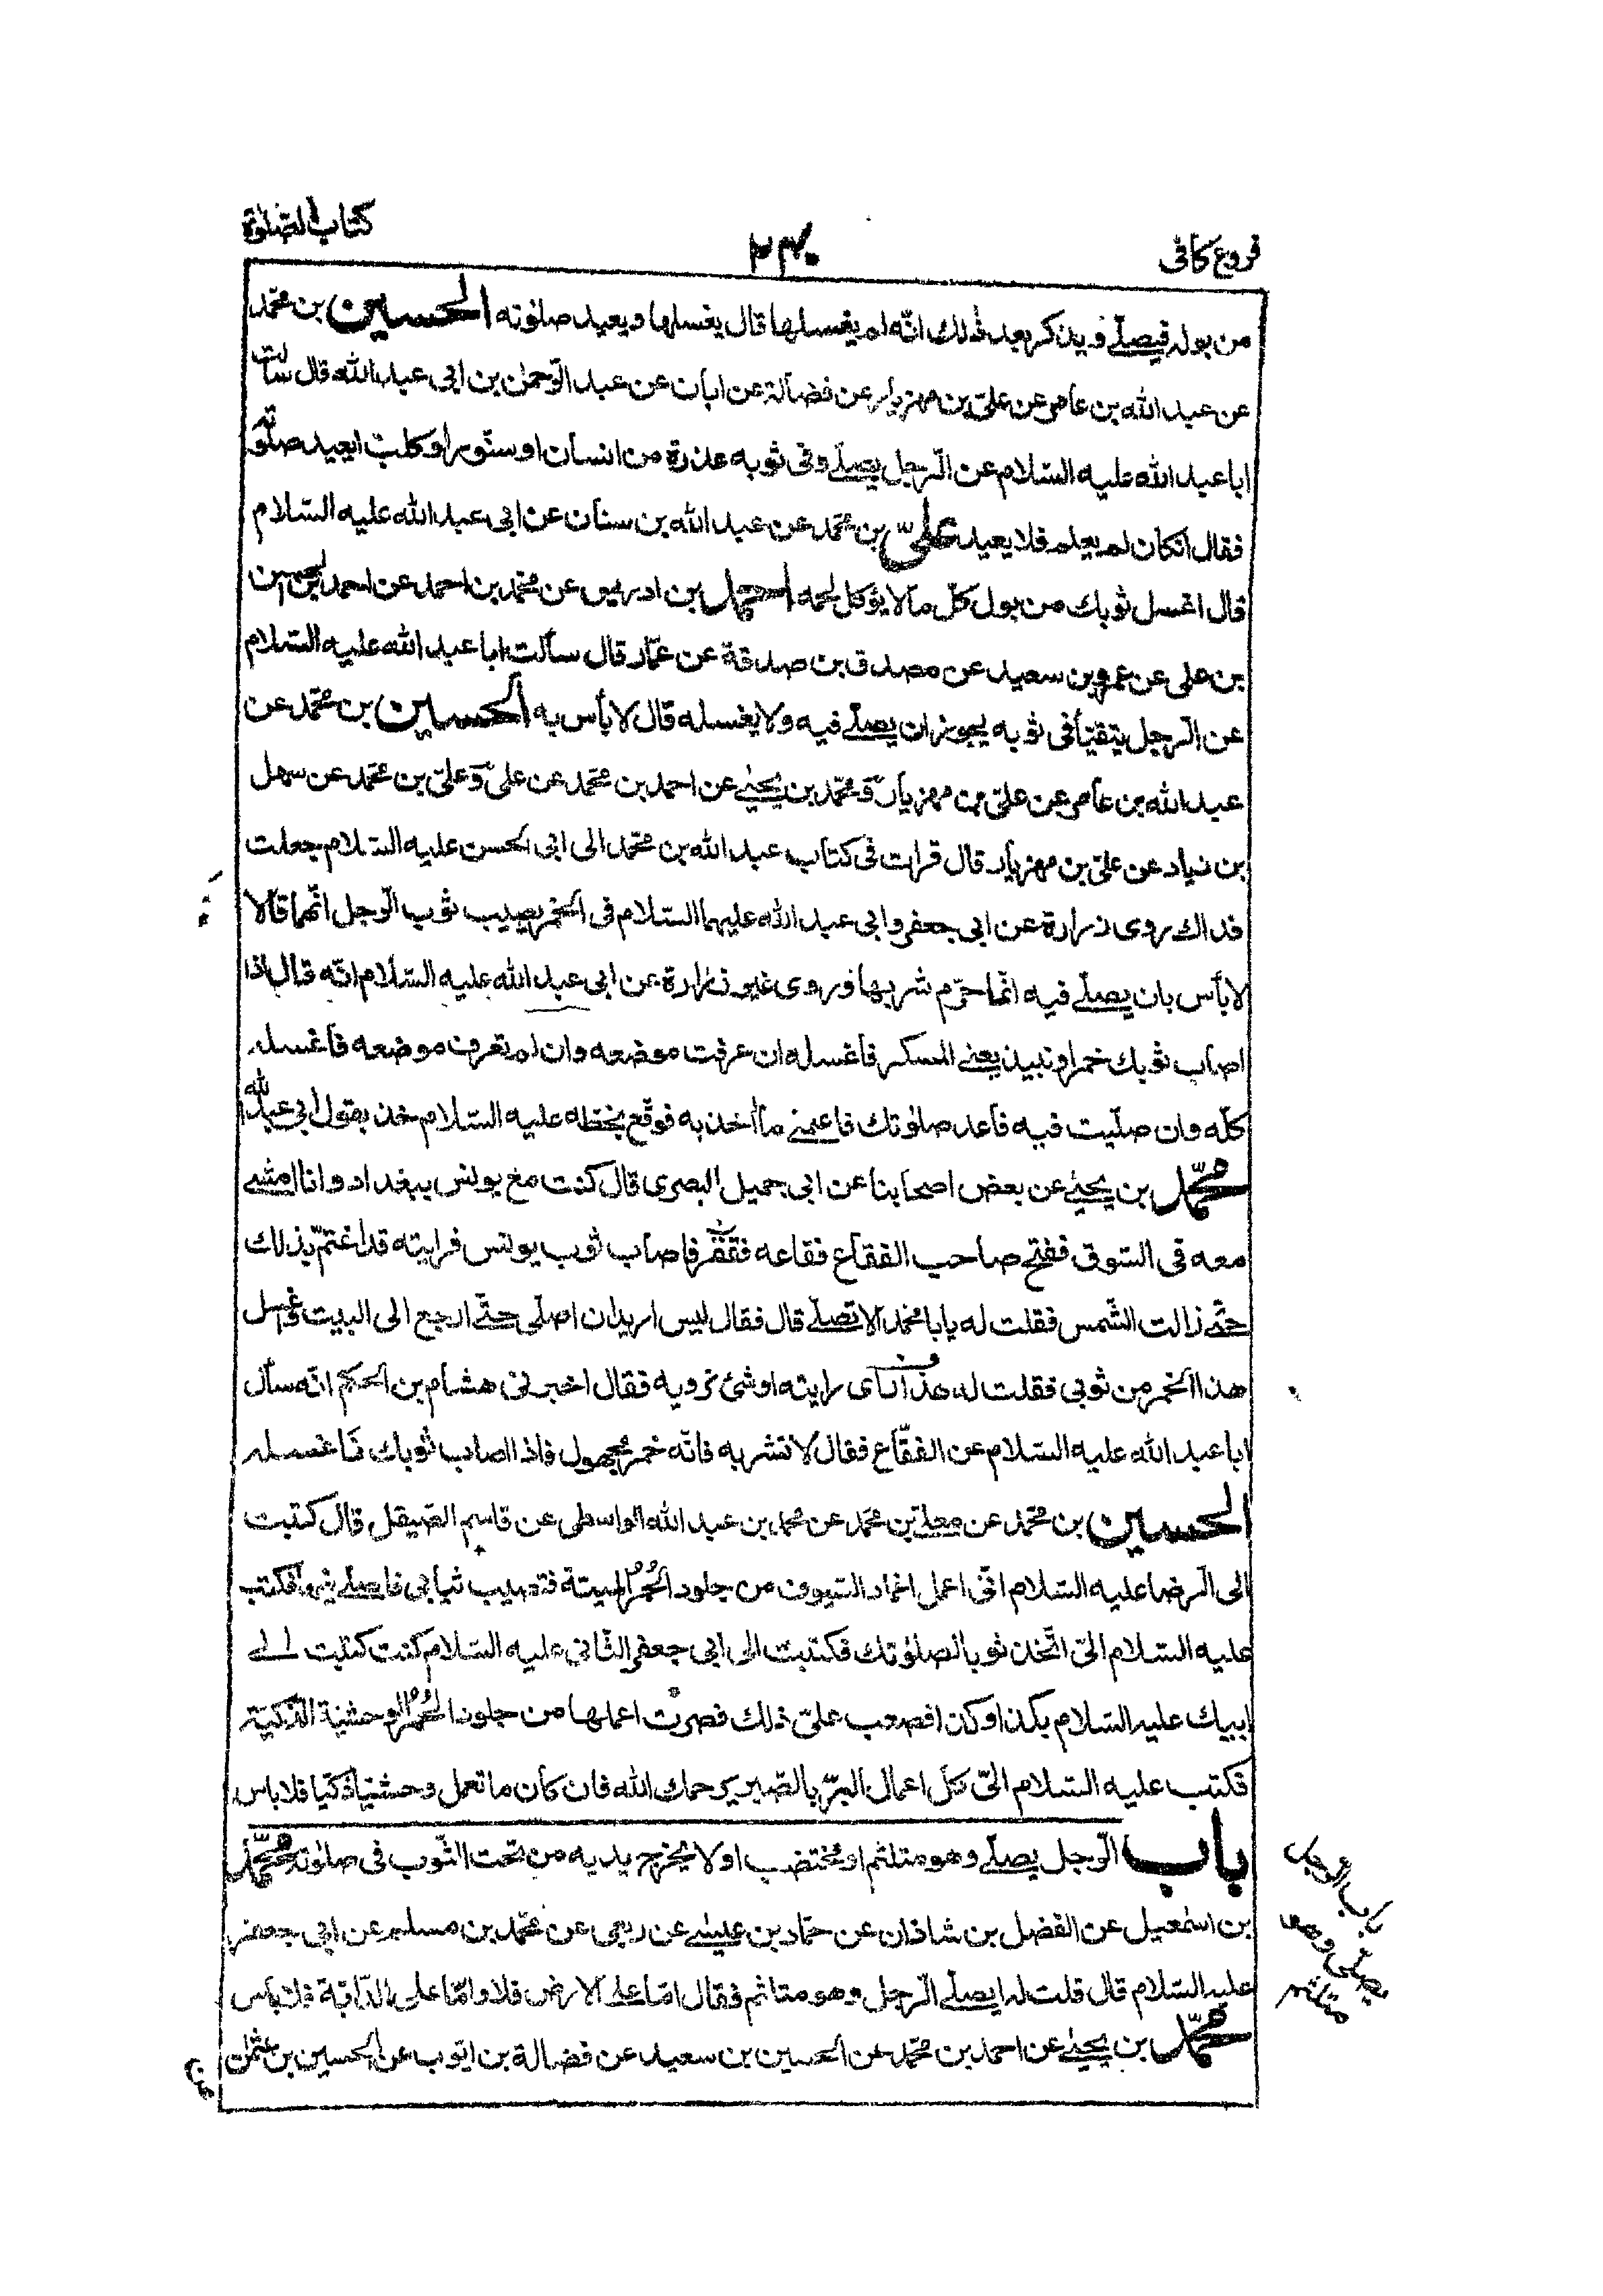 فروع كافى
٢٣٠
كتاب الصلوة
من بوله فيصلّى ويذكر بعد ذلك انّه لم يغسلها قال يغسلها ويعيد صلوته الحسين بن محمّد
عن عبد الله بن عامر عن علىّ بن مهزيار عن فضالة عن ابان عن عبد الرّحمن بن ابى عبد الله قال سالت
ابا عبد الله عليه السّلام عن الرّجل يصلّى وفى ثوبه عذرة من انسان او سنّور او كلب ايعيد صلوته
فقال انكان لم يعلم فلا يعيد علىّ بن محمّد عن عبد الله بن سنان عن ابى عبد الله عليه السّلام
قال اغسل ثوبك من بول كلّ ما لا يؤكل لحمه احمد بن ادريس عن محمّد بن احمد عن احمد بن الحسن
بن على عن عمرو بن سعيد عن مصدق بن صدقة عن عمّار قال سألت ابا عبد الله عليه السّلام
عن الرّجل يتقيّأ فى ثوبه يجوز ان يصلّى فيه ولا يغسله قال لا بأس به الحسين بن محمّد عن
عبد الله بن عامر عن علىّ بن مهزيار ومحمّد بن يحيى عن احمد بن محمّد عن علىّ وعلىّ بن محمّد عن سهل
بن زياد عن علىّ بن مهزيار قال قرات فى كتاب عبد الله بن محمّد الى ابى الحسن عليه السّلام جعلت
فداك روى زرارة عن ابى جعفر وابى عبد الله عليهما السّلام فى الخمر يصيب ثوب الرّجل انّهما قالا
لا بأس بان يصلّى فيه انّما حرّم شربها وروى غير زرارة عن ابى عبد الله عليه السّلام انّه قال اذا
اصاب ثوبك خمر او نبيذ يعنى المسكر فاغسله ان عرفت موضعه وان لم تعرف موضعه فاغسله
كلّه وان صلّيت فيه فاعد صلوتك فاعلمنى ما اخذ به فوقّع بخطّه عليه السّلام خذ بقول ابى عبد الله
محمّد بن يحيى عن بعض اصحابنا عن ابى جميل البصرى قال كنت مع يونس ببغداد وانا امشى
معه فى السّوق ففتح صاحب الفقاع فقاعه فقفز فاصاب ثوب يونس فرايته قد اغتمّ بذلك
حتّى زالت الشّمس فقلت له يا با محمّد الا تصلّى قال فقال ليس اريد ان اصلّى حتّى ارجع الى البيت واغسل
هذا الخمر من ثوبى فقلت له هذا رأى رايته او شئ ترويه فقال اخبرنى هشام بن الحكم انّه سأل
ابا عبد الله عليه السّلام عن الفقّاع فقال لا تشربه فانّه خمر مجهول فاذا اصاب ثوبك فاغسله
الحسين بن محمّد عن معلّى بن محمّد عن محمد بن عبد الله الواسطى عن قاسم الصّيقل قال كتبت
الى الرّضا عليه السّلام انّى اعمل اغماد السّيوف من جلود الحُمُر الميتة فتصيب ثيابى فاصلّى فيها فكتب
عليه السّلام الىّ اتّخذ ثوبا لصلوتك فكتبت الى ابى جعفر الثّانى عليه السّلام كنت كتبت الى
ابيك عليه السّلام بكذا وكذا فصعب علىّ ذلك فصرت اعملها من جلود الحُمُر الوحشيّة الذّكيّة
فكتب عليه السّلام الىّ كلّ اعمال البرّ بالصّبر يرحمك الله فان كان ما تعمل وحشيّا ذكيّا فلا باس
باب الرّجل يصلّى وهو متلثم او مختضب او لا يخرج يديه من تحت الثّوب فى صلوته محمّد
بن اسمعيل عن الفضل بن شاذان عن حمّاد بن عيسى عن ربعى عن محمّد بن مسلم عن ابى جعفر
عليه السّلام قال قلت له ايصلّى الرّجل وهو متلثم فقال امّا على الارض فلا وامّا على الدّابّة فلا باس
محمّد بن يحيى عن احمد بن محمّد عن الحسين بن سعيد عن فضالة بن ايّوب عن الحسين بن عثمان
باب الرجل
يصلى وهو
متلثم